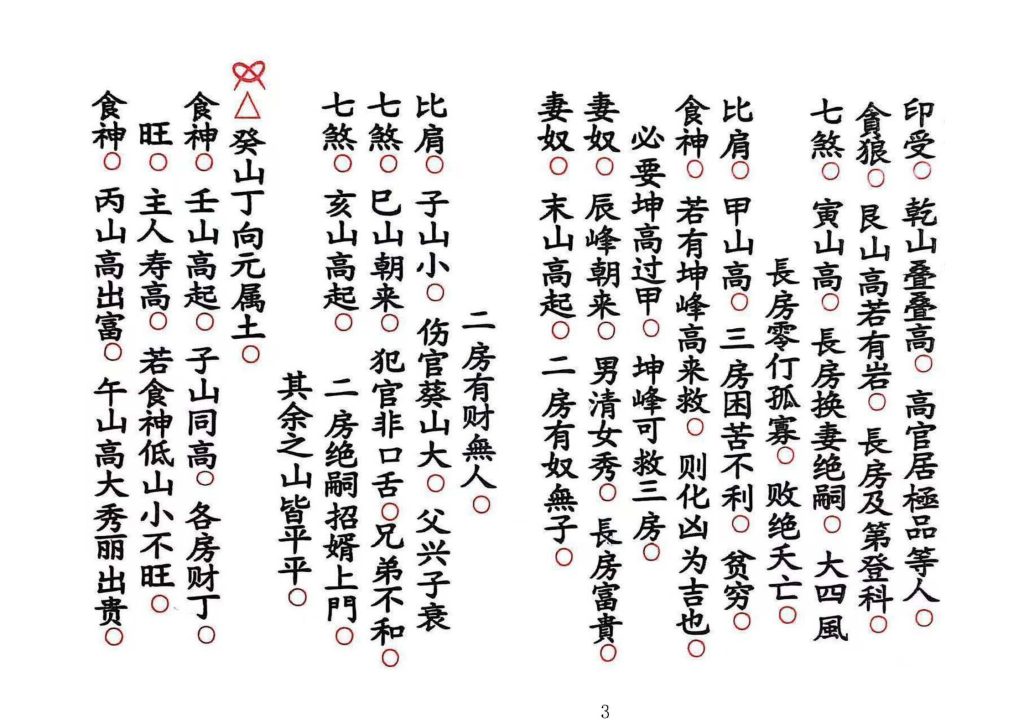 印受○ 乾山叠叠高○ 高官居極品等人○
貪狼○ 艮山高若有岩○ 長房及第登科○
七煞○ 寅山高○ 長房换妻绝嗣○ 大四風
長房零仃孤寡○ 败绝夭亡○
比肩○ 甲山高○ 三房困苦不利○ 贫穷○
食神○ 若有坤峰高来救○ 则化凶为吉也○
必要坤高过甲○ 坤峰可救三房○
妻奴○ 辰峰朝来○ 男清女秀○ 長房富貴○
妻奴○ 末山高起○ 二房有奴無子○
二房有财無人○
比肩○ 子山小○ 伤官葵山大○ 父兴子衰
七煞○ 巳山朝来○ 犯官非口舌○兄弟不和○
七煞○ 亥山高起○ 二房绝嗣招婿上門○
其余之山皆平平○
△癸山丁向元属土○
食神○ 壬山高起○ 子山同高○ 各房财丁○
旺○ 主人寿高○ 若食神低山小不旺○
食神○ 丙山高出富○ 午山高大秀丽出贵○
3